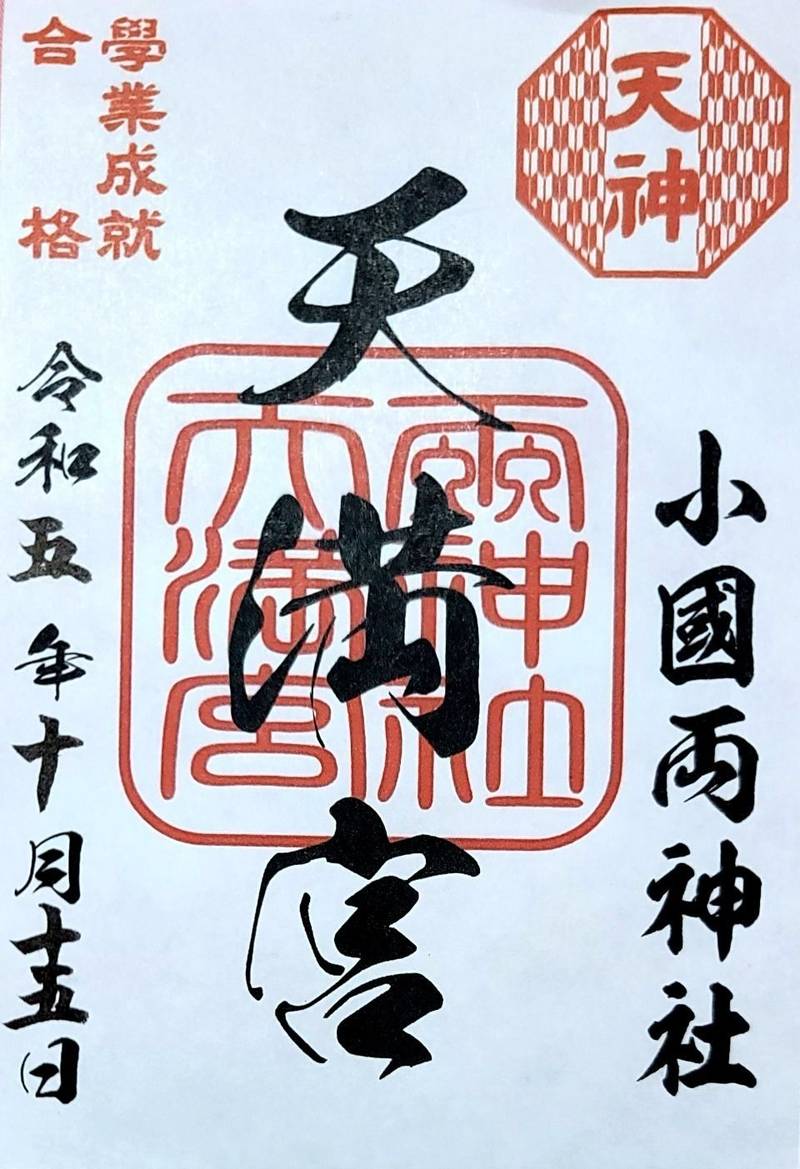 天神
小國両神社
天満宮
両神社
天満宮
學業成就
合格
令和五年十月十五日